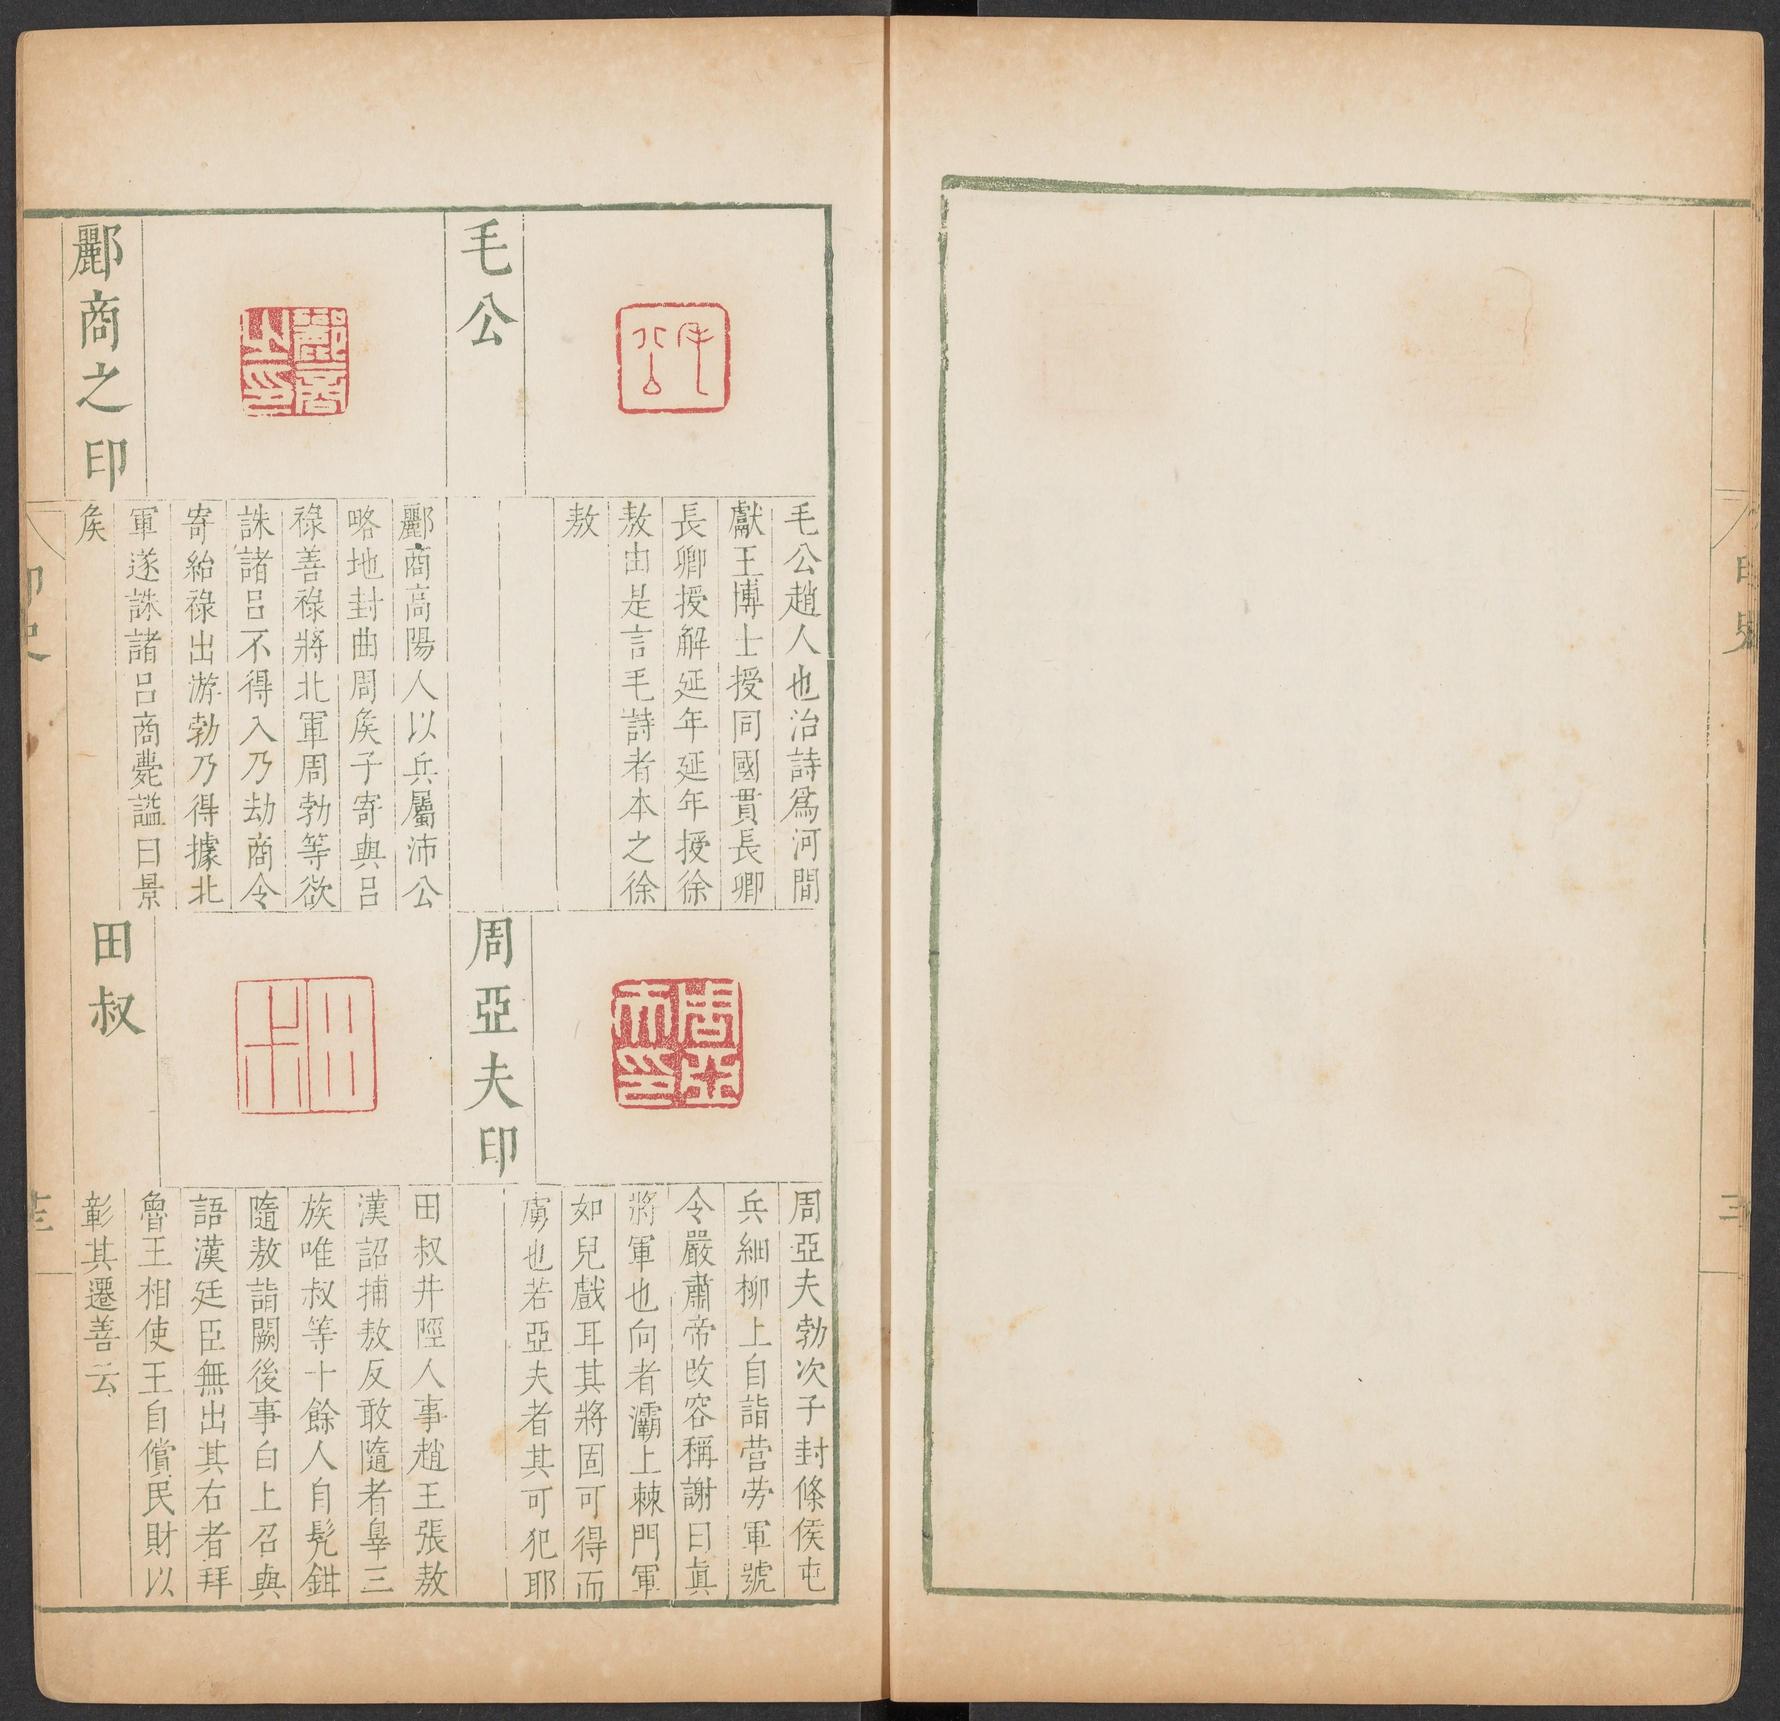 印史
毛公
毛公
毛公趙人也治詩爲河間
獻王博士授同國貫長卿
長卿授解延年延年授徐
敖由是言毛詩者本之徐
敖
酈商之印
酈商之印
酈商高陽人以兵屬沛公
略地封曲周矦子寄與呂
祿善祿將北軍周勃等欲
誅諸呂不得入乃劫商令
寄紿祿出游勃乃得據北
軍遂誅諸呂商薨諡曰景
矦
周亞夫印
周亞夫印
周亞夫勃次子封條侯屯
兵細柳上自詣營勞軍號
令嚴肅帝改容稱謝曰眞
將軍也向者灞上棘門軍
如兒戲耳其將固可得而
虜也若亞夫者其可犯耶
田叔
田叔
田叔井陘人事趙王張敖
漢詔捕敖反敢隨者辠三
族唯叔等十餘人自髡鉗
隨敖詣闕後事白上召與
語漢廷臣無出其右者拜
魯王相使王自償民財以
彰其遷善云
印史